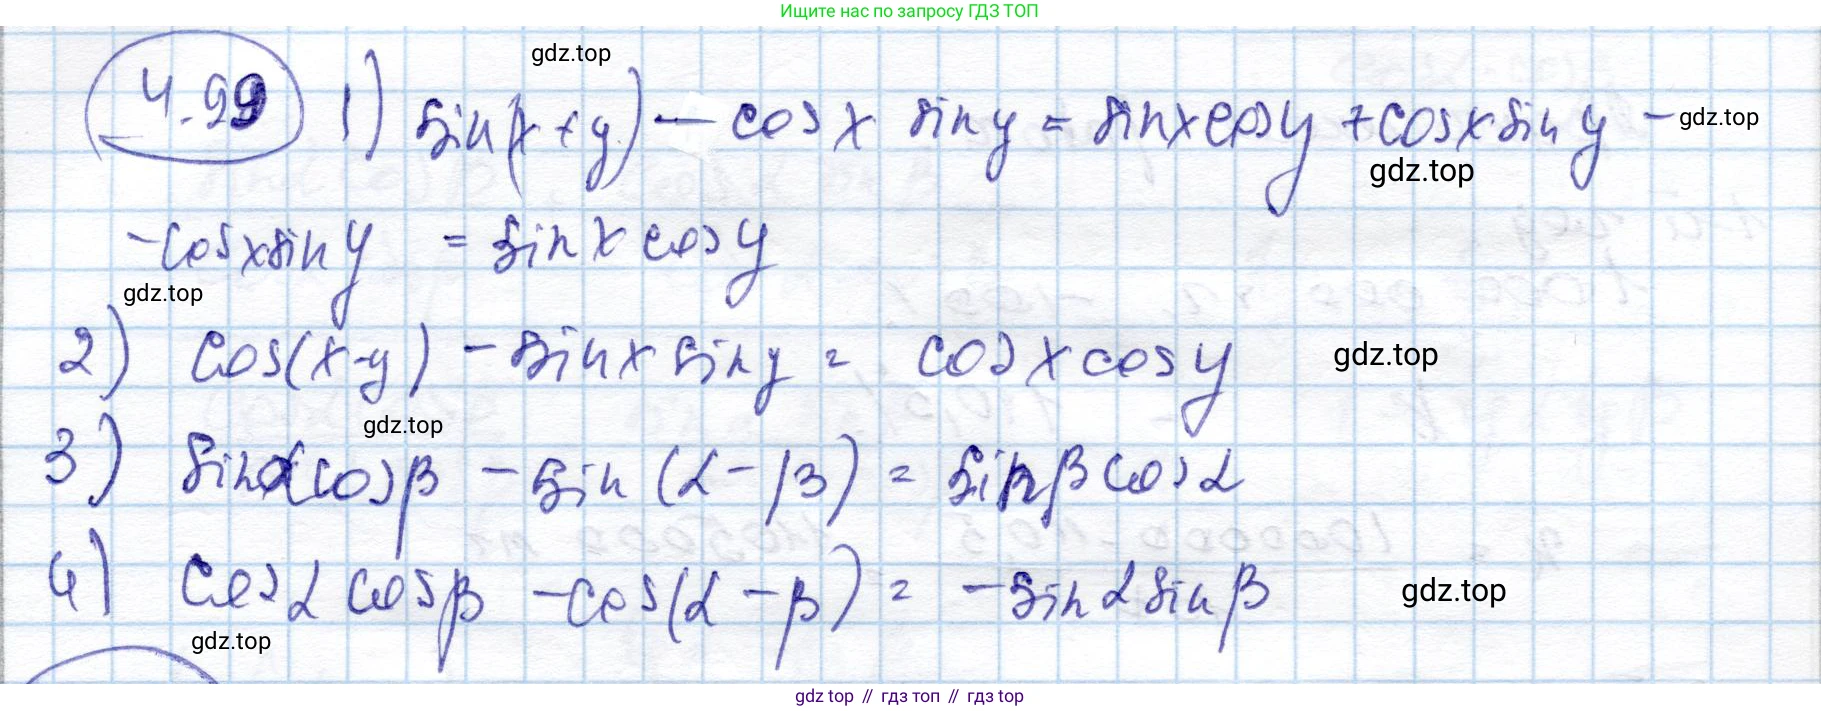 Ищите нас по запросу ГДЗ ТОП
gdz.top
4.99 1) sin(x+y) - cos x sin y = sin x cos y + cos x sin y - gdz.top
gdz.top
- cos x sin y = sin x cos y
gdz.top
2) cos(x-y) - sin x sin y = cos x cos y gdz.top
gdz.top
3) sin α cos β - sin (α - β) = sin β cos α
4) cos α cos β - cos (α - β) = - sin α sin β gdz.top
gdz.top
gdz top // гдз топ // гдз top